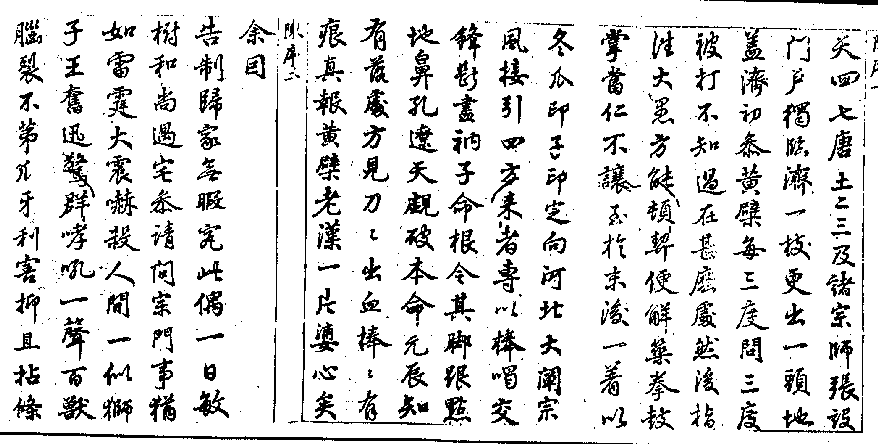 陳序一
天四七唐土二三及諸宗師張設
門戶獨臨濟一枝更出一頭地
蓋濟初叅黃檗每三度問三度
被打不知過在甚麼處然後指
往大愚方能頓契便解築拳鼓
掌當仁不讓至於末後一着以
冬瓜印子印定向河北大闡宗
風接引四方來者專以棒喝交
鋒斷盡衲子命根令其脚跟點
地鼻孔遼天覷破本命元辰知
有落處方見刀刀出血棒棒有
痕真報黃檗老漢一片婆心矣
陳序二
余因
告制歸家無暇究此偶一日敏
樹和尚過宅叅請問宗門事猶
如雷霆大震嚇殺人間一似獅
子王奮迅驚群哮吼一聲百獸
腦裂不第爪牙利害抑且拈條